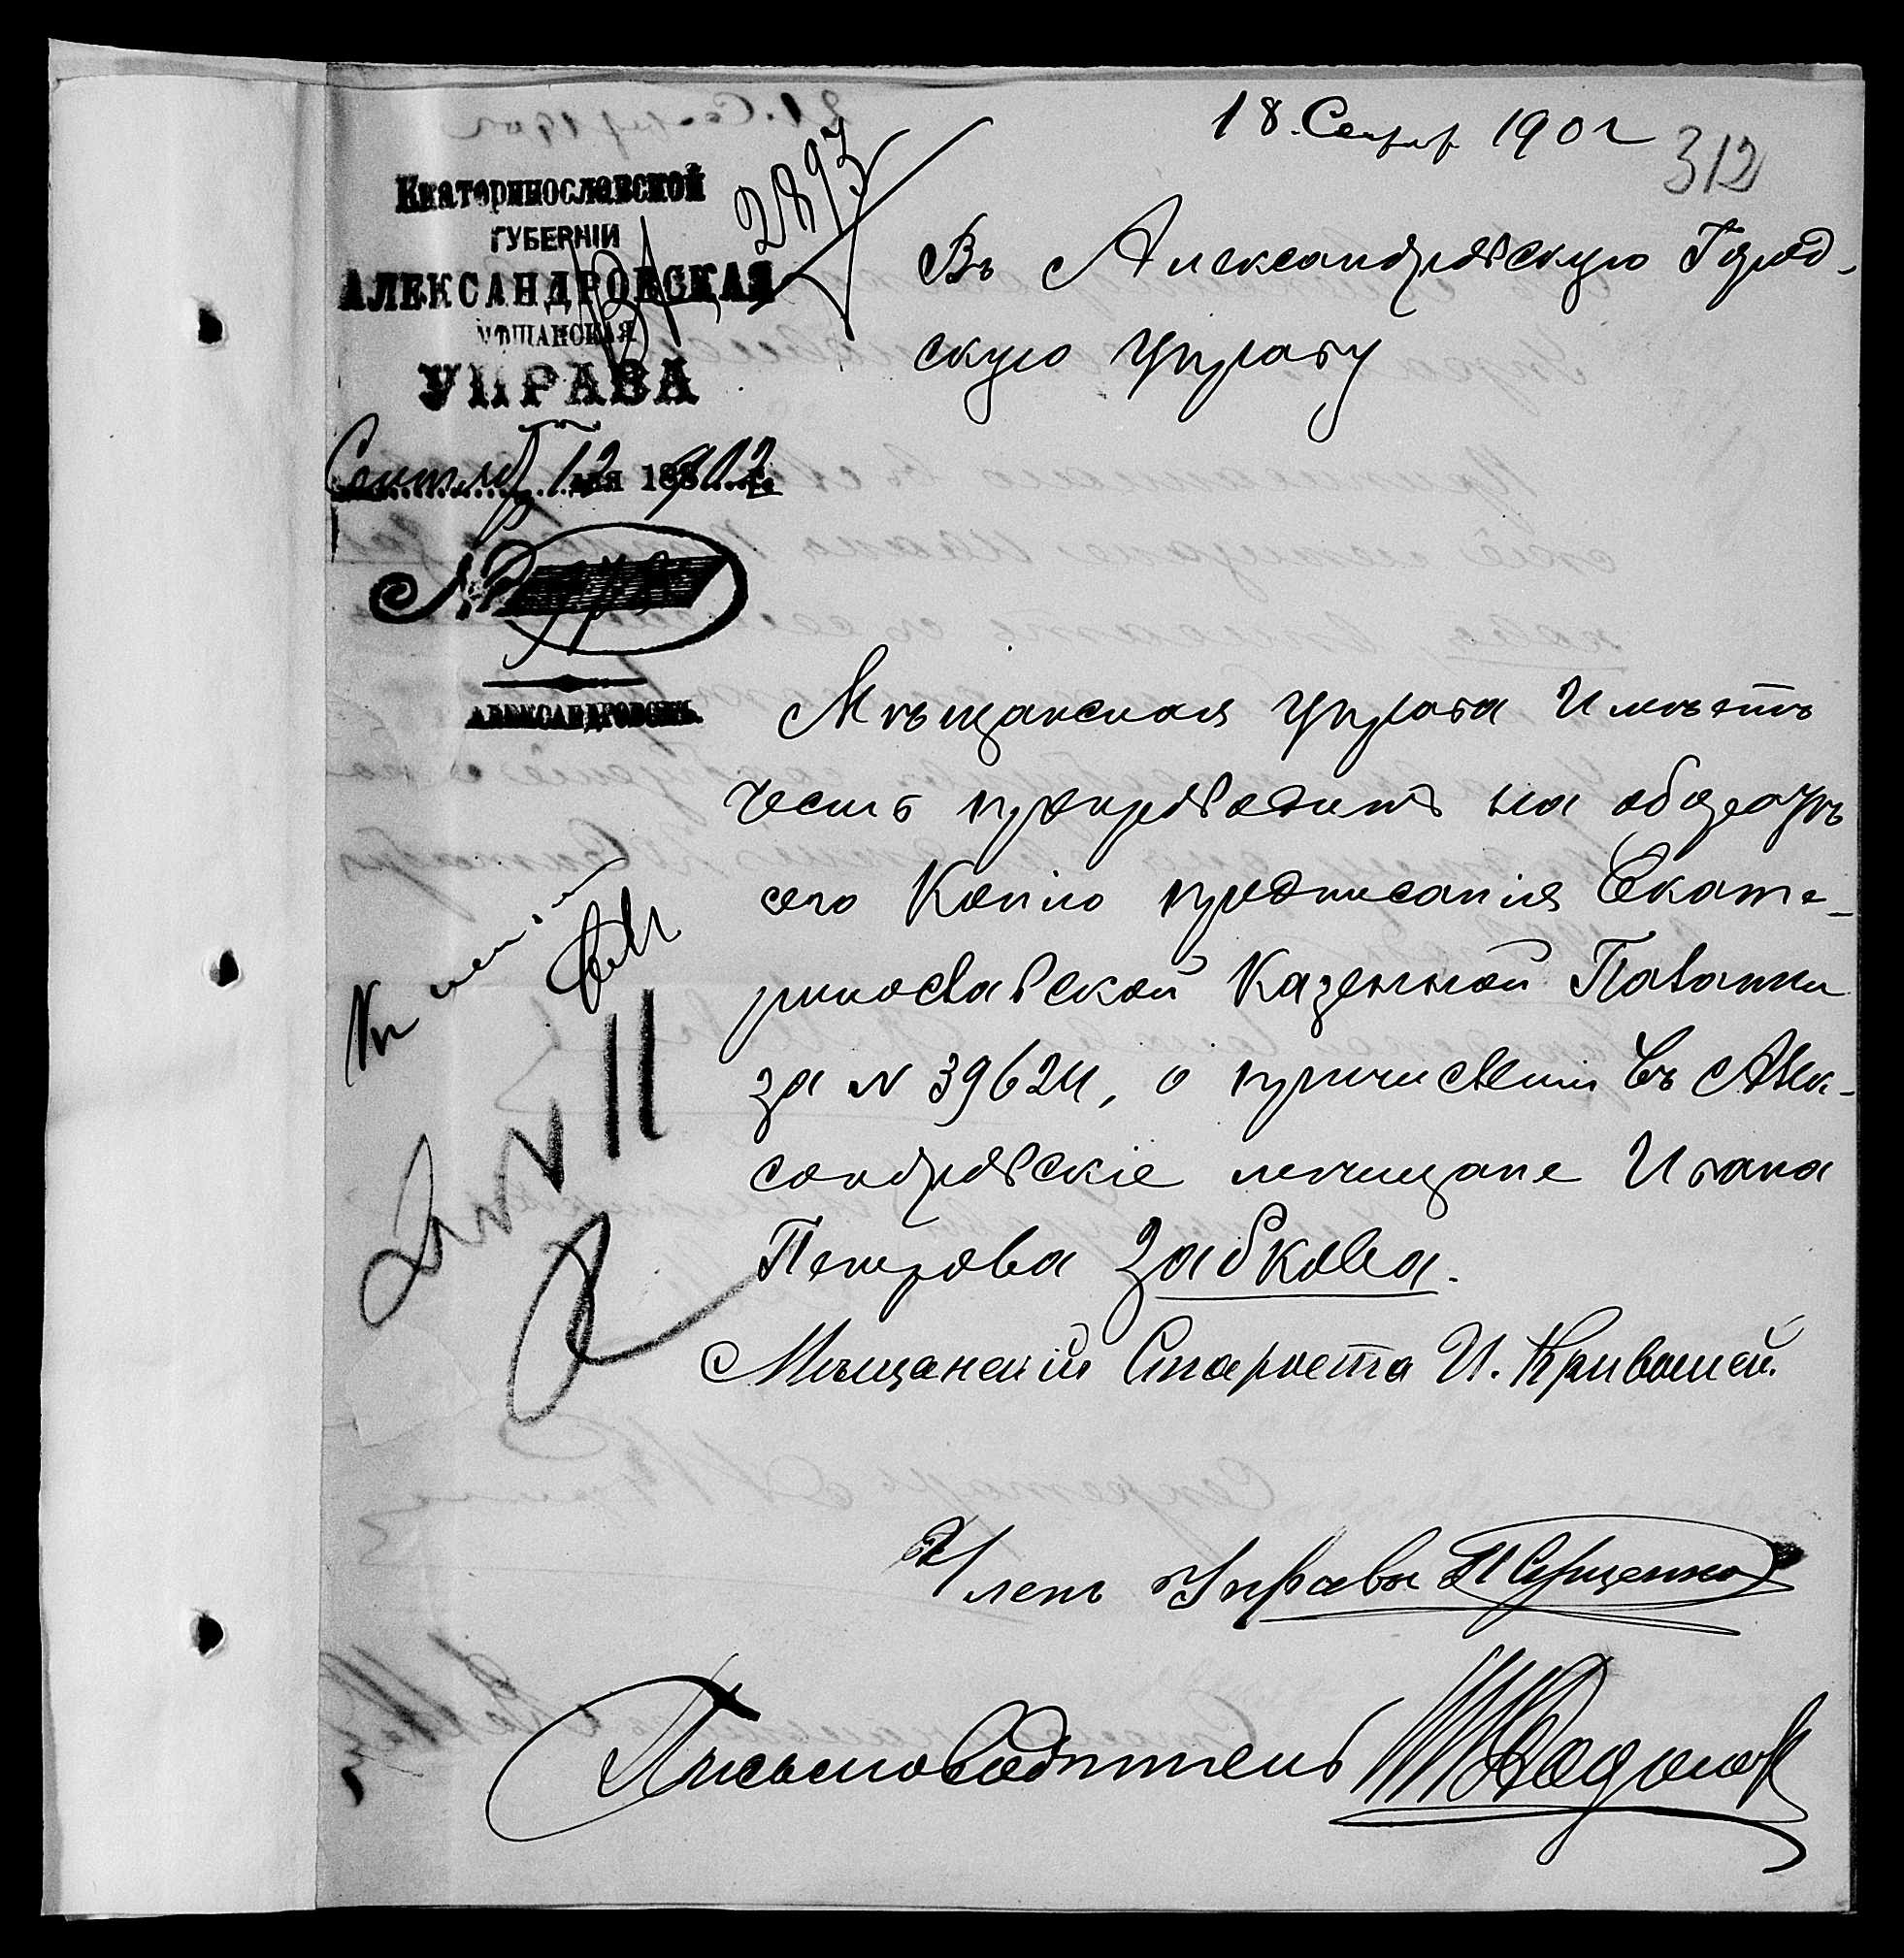 18. Сентяб 1902
312
Екатеринославской
ГУБЕРНІИ
АЛЕКСАНДРОВСКАЯ
МѢЩАНСКАЯ
УПРАВА
2893
Сентяб 12 дня 1902 г.
№
АЛЕКСАНДРОВСКЪ.
Въ Александровскую Город-
скую Управу
Мѣщанская управа Имѣетъ
честь препроводить на оборотѣ
сего Копію предписанія Екате-
ринославской Казенной Палаты
за № 39624, о причисленіи въ Алек-
сандровскіе мѣщане Ивана
Петрова Забкова.
Мѣщанскій Староста И. Кривошей.
Членъ Управы
Письмоводитель